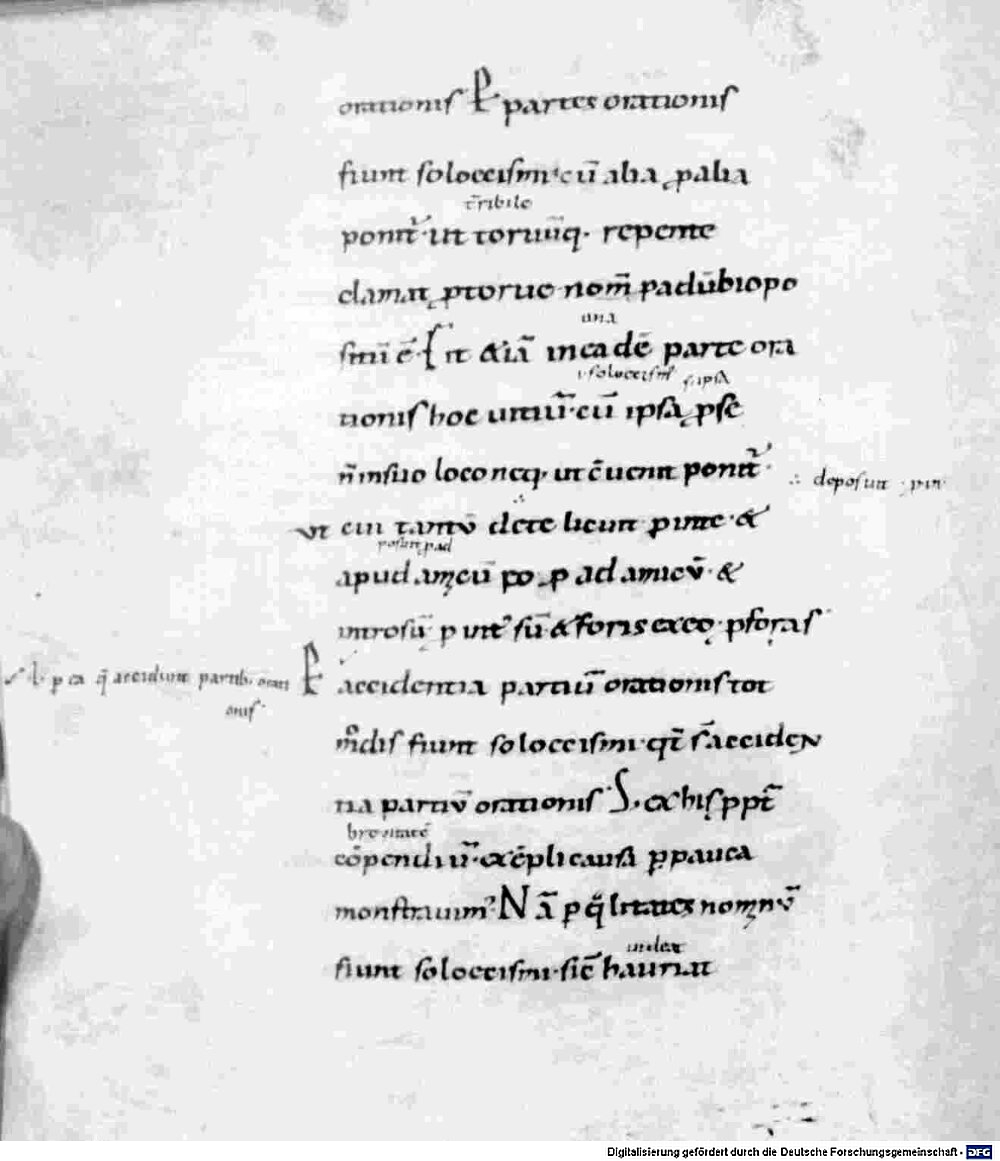 orationis P partes orationis
fiunt soloecismi · cū alia p alia
t̄ribile
ponit̄ ut toruūq · repente
clamat p torue nom̄ p aduerbio po
una
 ē · Fit &iā in eadē parte ora
soloecismꝰ ipsa
tionis hoc uitiū · cū ipsa p se
n̄ in suo loco neq ut c̄uenit ponit̄ ·
∴ deposun
ut cui tantū dete licent &
posun pad
apud amicū p ad amicū · &
introsū p int' sū & foris exeo · p foras
p ea q̄ accidunt partib · orati
onis
P accidentia partiū orationis tot
mͦdis fiunt soloecismi · qt s̄ acciden
tia partiū orationis S, ex his ppt̄
breuitatē
cōpendiū · exēpli causa p pauca
monstrauim' · Nā p q̄litates nominū
fiunt soloecismi · sic̄ hauriat